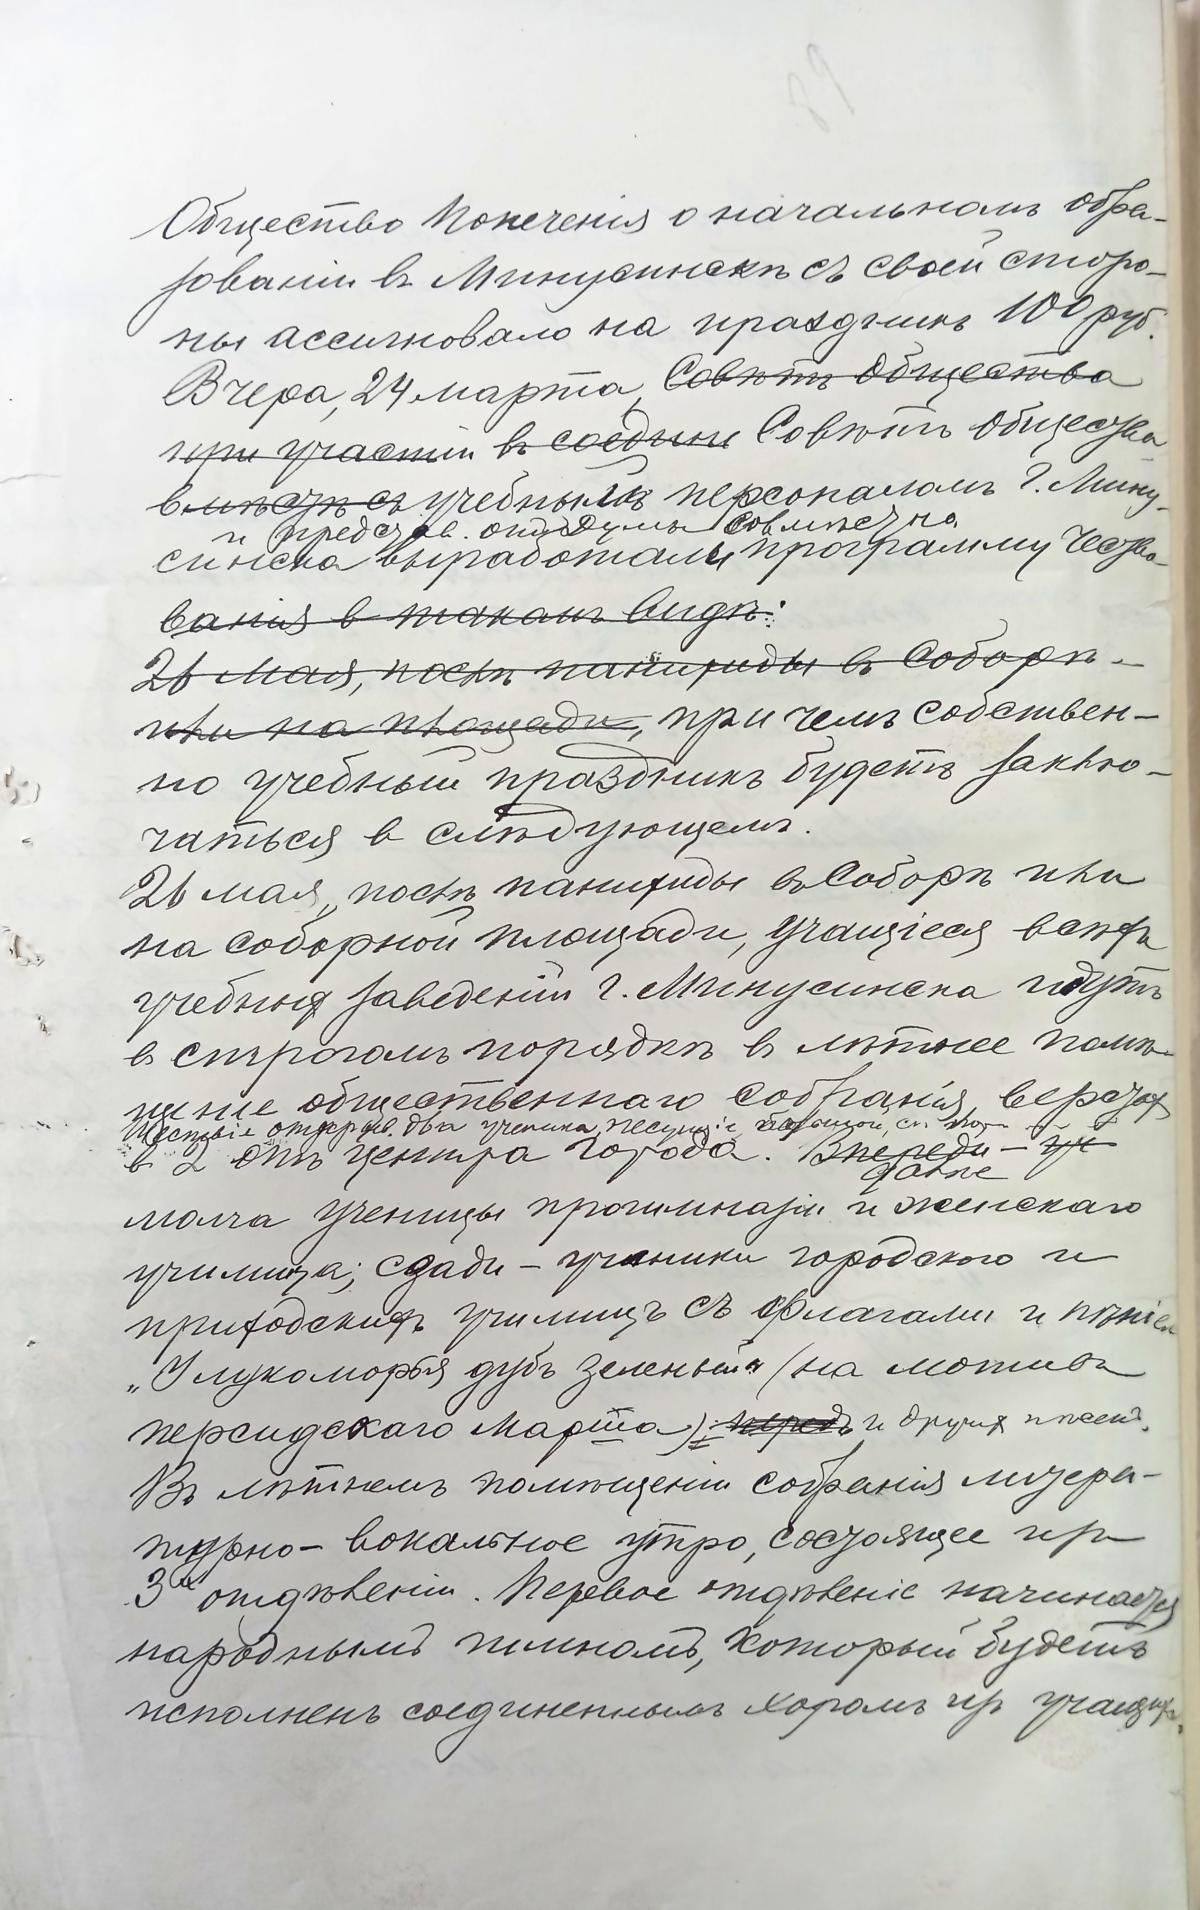 Общество Попеченія о начальномъ обра-
зованіи въ Минусинскѣ съ своей сторо-
ны ассигновало на праздникъ 100 руб.
Вчера, 24 марта, Совѣтъ Общества
при участіи въ соедине Совѣтъ Общества
вмѣстѣ съ учебнымъ персоналомъ г. Мину-
и представ. отъ думы совмѣстно
синска выработали программу чество-
ванія въ такомъ видѣ:
26 мая, послѣ панихиды въ Соборѣ –
или на площади, при чемъ собствен-
но учебный праздникъ будетъ заклю-
чаться в слѣдующемъ.
26 мая, послѣ панихиды въ Соборѣ или
на соборной площади, учащіеся всѣхъ
учебныхъ заведеній г. Минусинска идутъ
въ строгомъ порядкѣ въ лѣтнее помѣ-
щеніе общественнаго собранія, верстахъ
Шествіе открыв. два ученика, несущіе
въ 2 отъ центра города. Впереди – уч
далѣе
молча ученицы прогимназіи и женскаго
училища; сзади – ученики городского и
приходскихъ училищъ съ флагами и пѣніемъ
„У лукоморья дубъ зеленый" (на мотивъ
персидскаго марша) передъ и другихъ пѣсенъ.
Въ лѣтнемъ помѣщеніи собранія литера-
турно-вокальное утро, состоящее изъ
3х отдѣленій. Первое отдѣленіе начинается
народнымъ гимномъ, который будетъ
исполненъ соединеннымъ хоромъ изъ учащихъ,